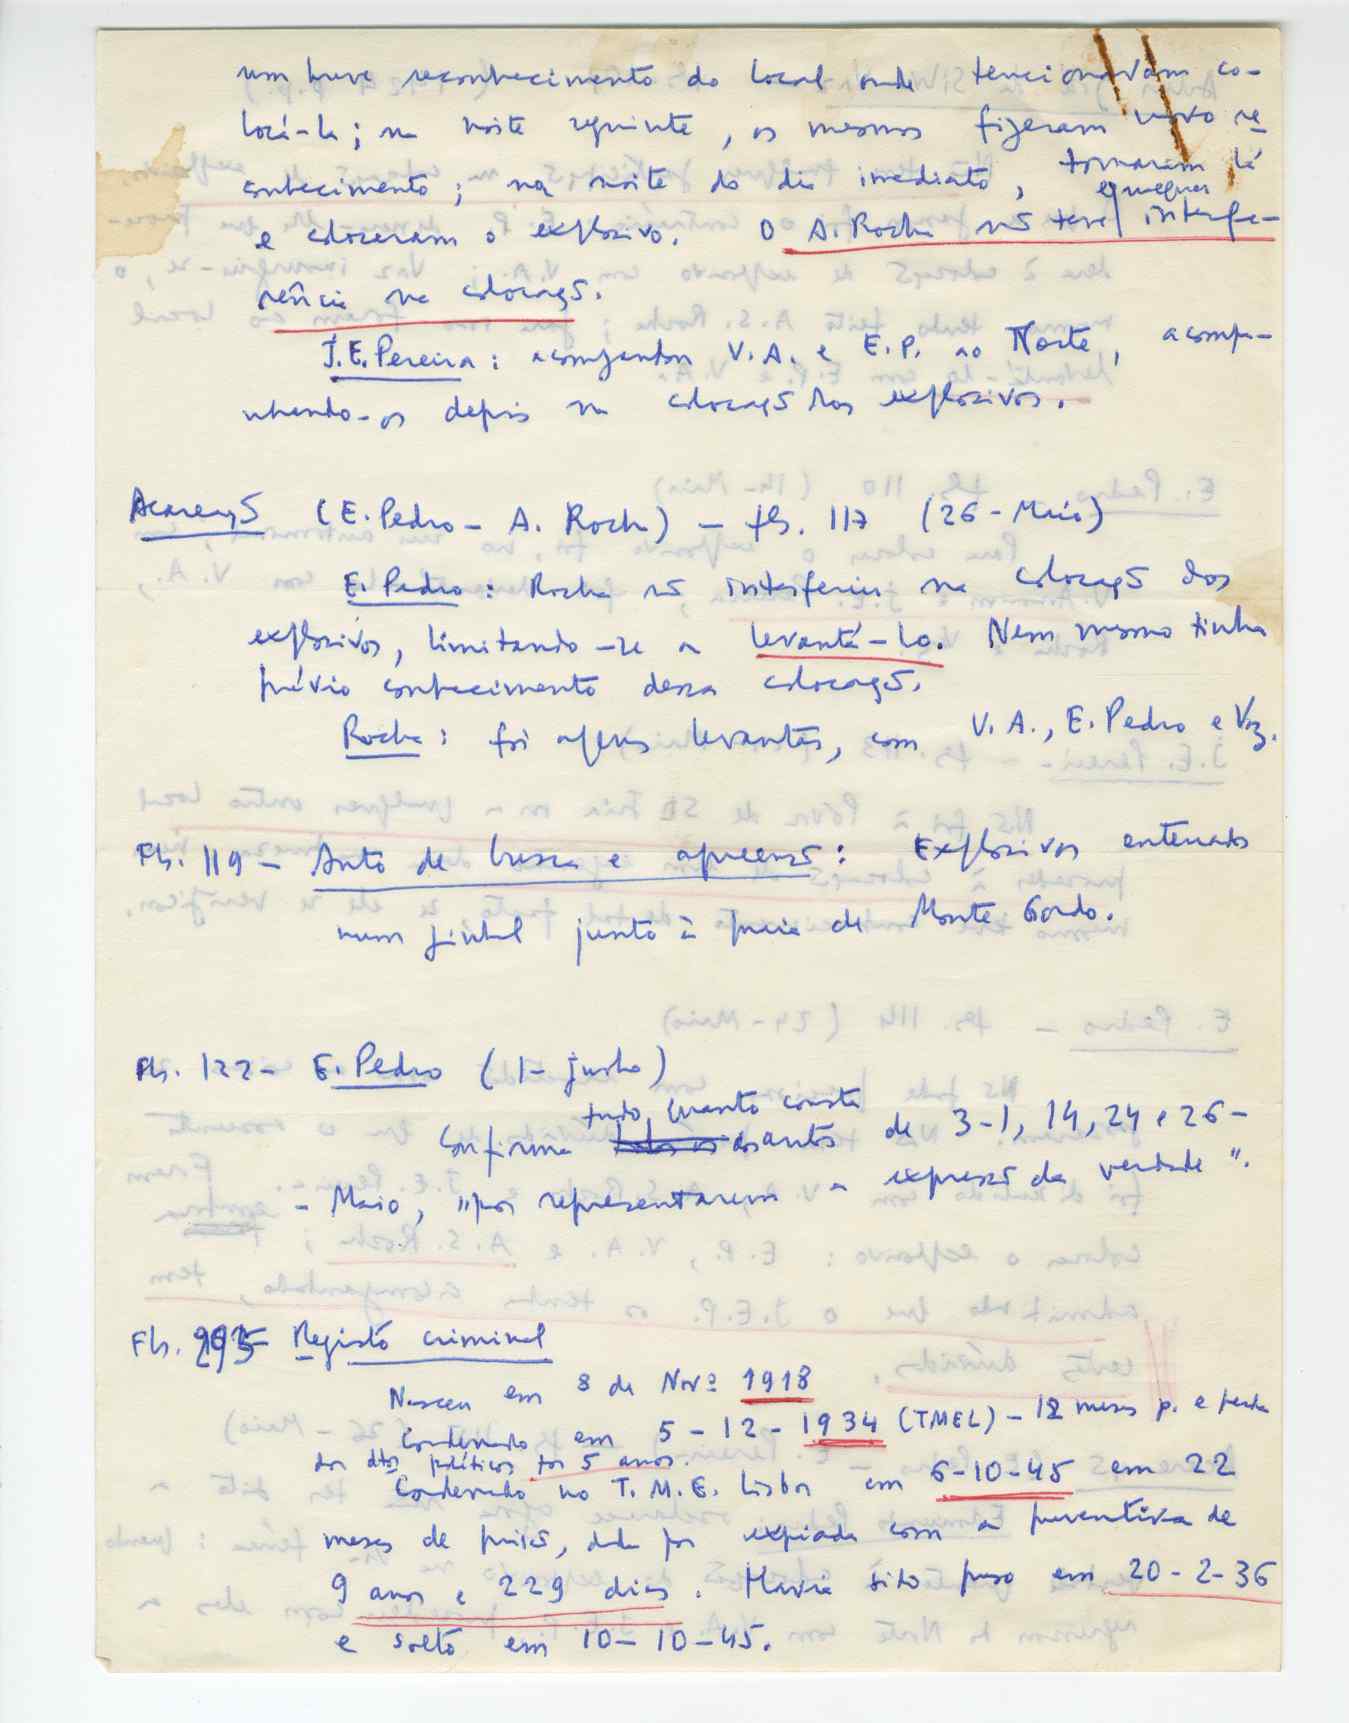 um breve reconhecimento do local onde tencionavam co-
locá-la; na noite seguinte, os mesmos fizeram novo re
conhecimento; na noite do dia imediato, tornaram lá
e colocaram o explosivo. O A. Rocha nõ teve qualquer interfe-
rência na colocaçõ.
J.E. Pereira: acompanhou V.A. e E.P. ao Norte, acompa-
nhando-os depois na colocaçõ dos explosivos.
Acareaçõ (E. Pedro - A. Rocha) - fls. 117 (26 - Maio)
E. Pedro: Rocha nõ interferiu na colocaçõ dos
explosivos, limitando-se a levantá-lo. Nem mesmo tinha
prévio conhecimento dessa colocaçõ.
Rocha: foi apenas levantá-los, com V.A., E. Pedro e Vaz.
Fls. 119 - Auto de busca e apreensõ: Explosivos enterrados
num pinhal junto à praia de Monte Gordo.
Fls. 122 - E. Pedro (1 - junho)
Confirma tudo quanto consta dos autos de 3-1, 14, 24 e 26 -
- Maio, "por representarem a expressõ da verdade".
Fls. Registo criminal
Nasceu em 8 de Novº 1918
Condenado em 5 - 12 - 1934 (TMEL) - 12 meses p. e perda
dos dtos políticos por 5 anos.
Condenado no T. M. E. Lisboa em 6-10-45 em 22
meses de prisõ, dada por expiada com a preventiva de
9 anos e 229 dias. Havia sido preso em 20 - 2 - 36
e solto em 10 - 10 - 45.